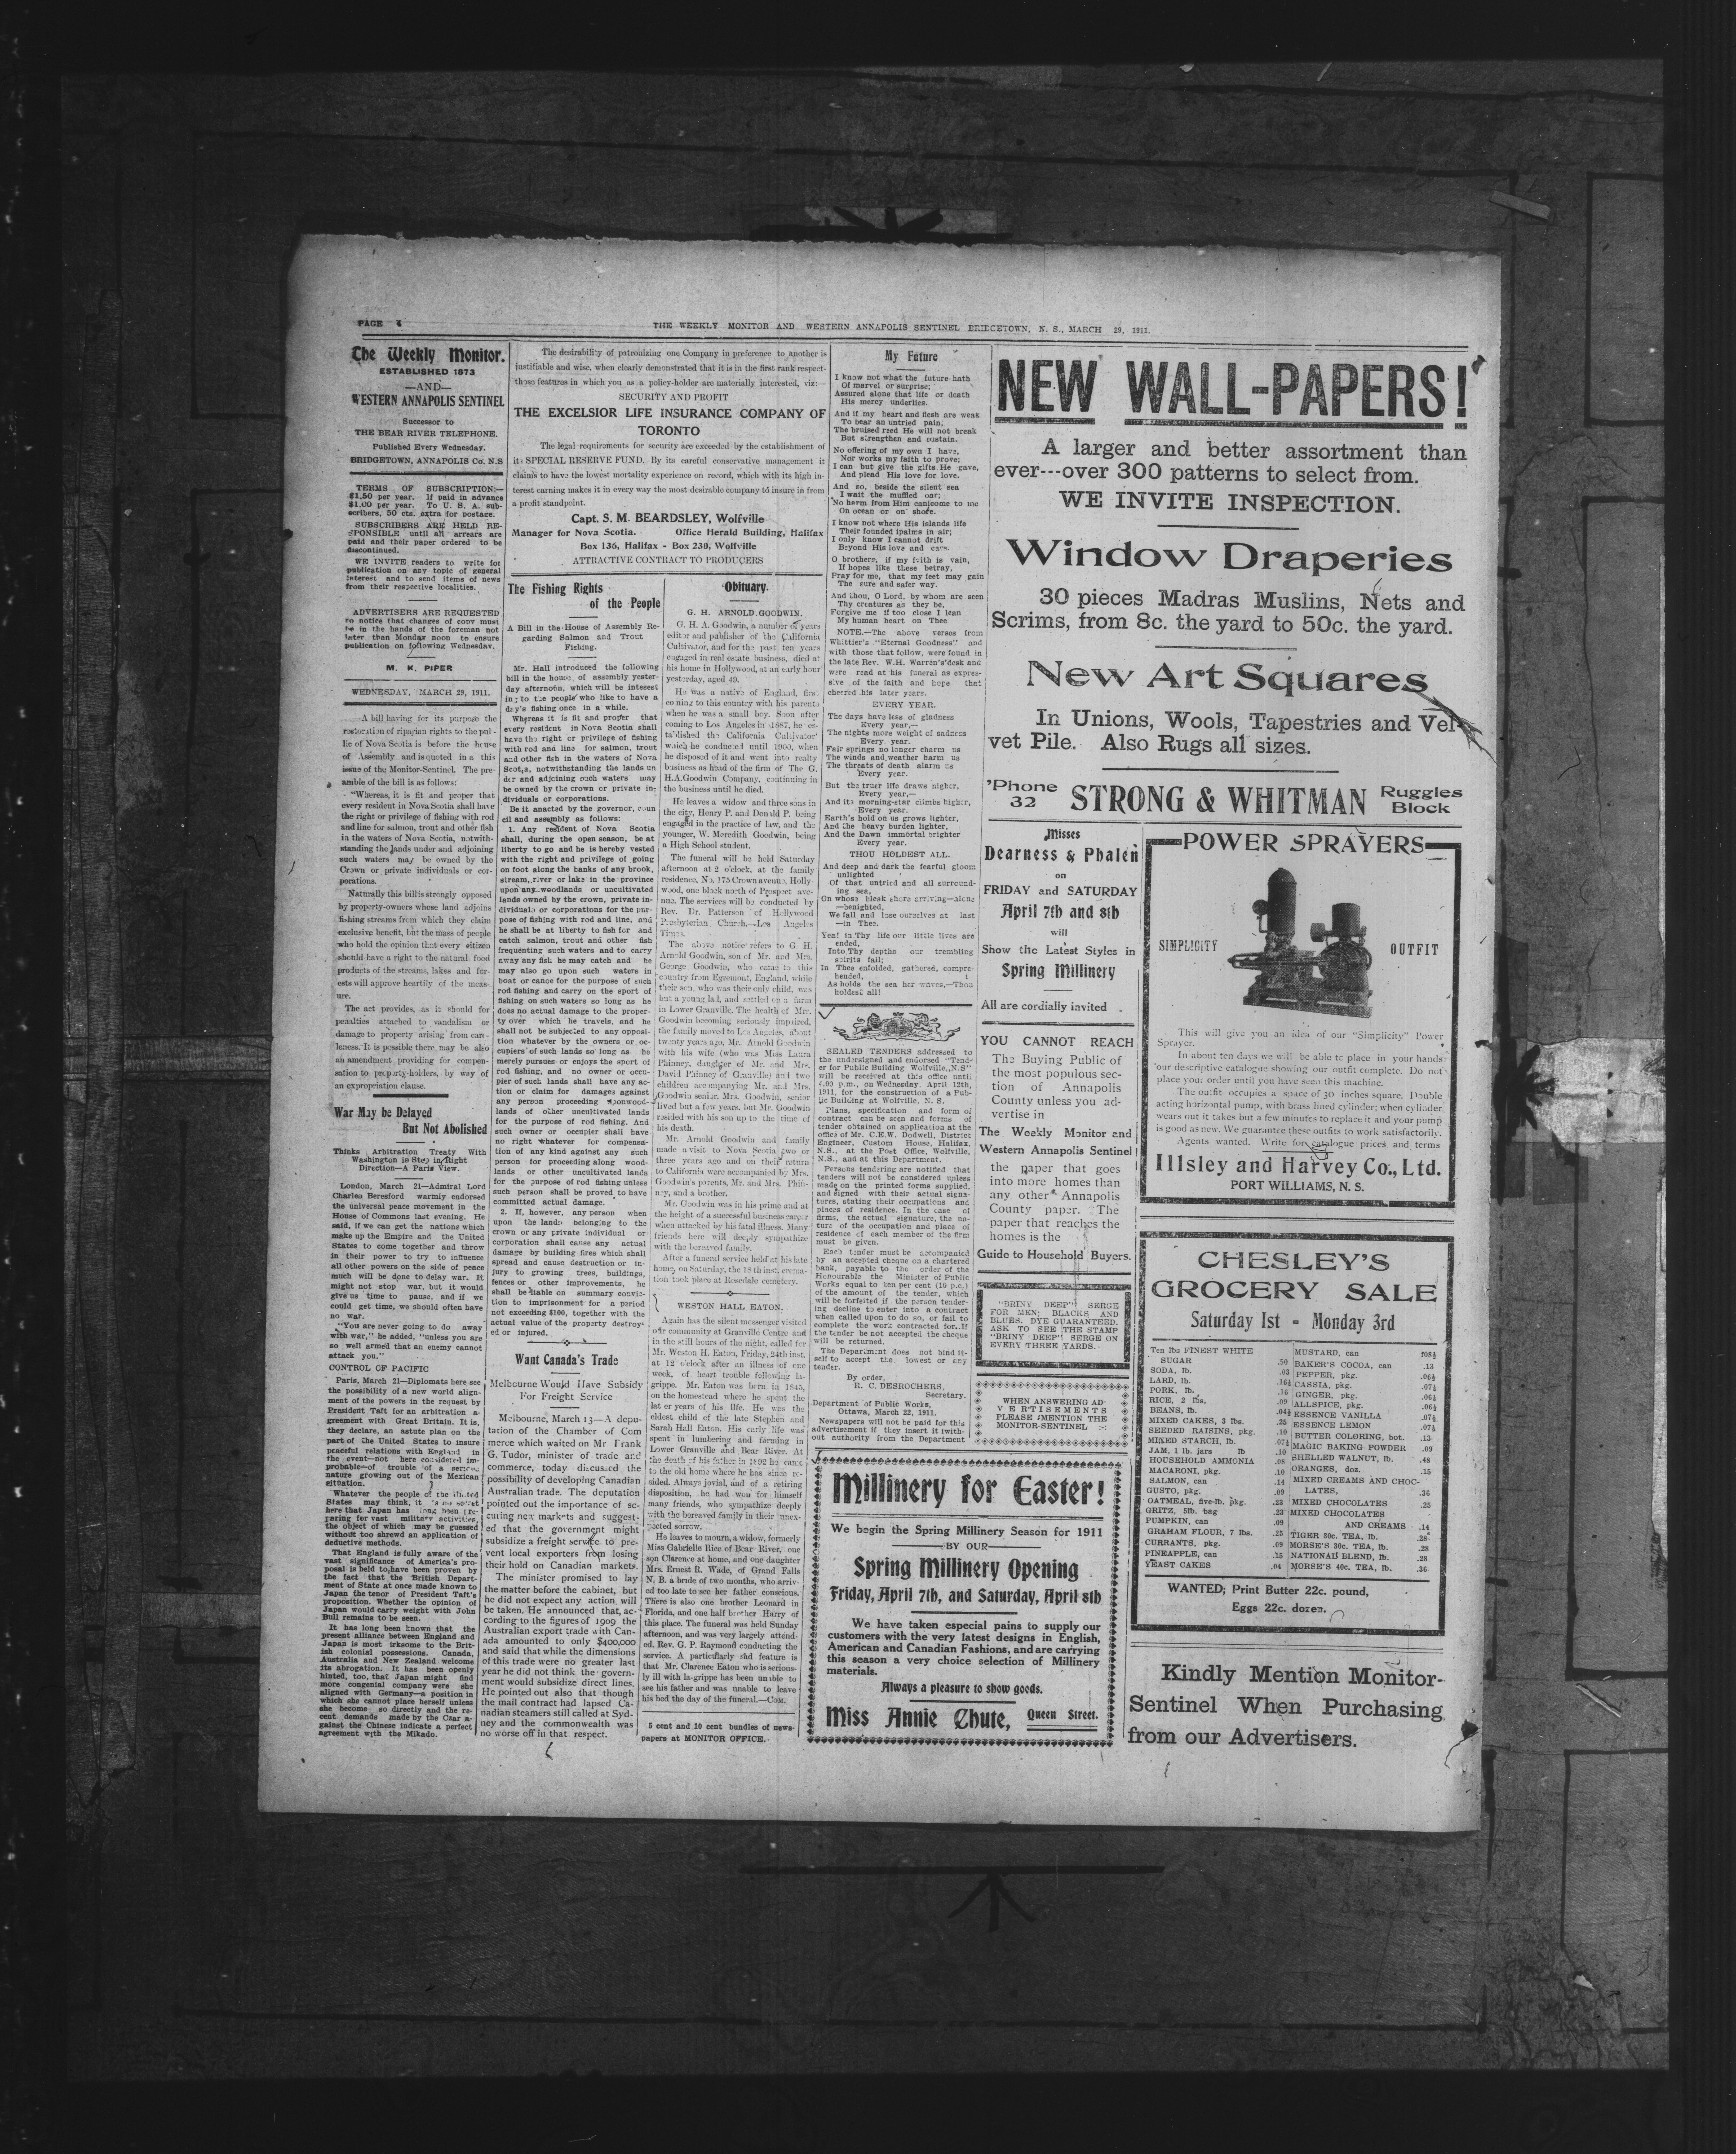 PAGE 4
THE WEEKLY MONITOR AND WESTERN ANNAPOLIS SENTINEL BRIDGETOWN, N. S., MARCH 29, 1911.
The Weekly Monitor.
ESTABLISHED 1873
—AND—
WESTERN ANNAPOLIS SENTINEL
Successor to
THE BEAR RIVER TELEPHONE.
Published Every Wednesday.
BRIDGETOWN, ANNAPOLIS Co. N.S
TERMS OF SUBSCRIPTION:—
$1.50 per year. If paid in advance
$1.00 per year. To U. S. A. sub-
scribers, 50 cts. extra for postage.
SUBSCRIBERS ARE HELD RE-
SPONSIBLE until all arrears are
paid and their paper ordered to be
discontinued.
WE INVITE readers to write for
publication on any topic of general
interest and to send items of news
from their respective localities.
ADVERTISERS ARE REQUESTED
to notice that changes of copy must
be in the hands of the foreman not
later than Monday noon to ensure
publication on following Wednesday.
M. K. PIPER
WEDNESDAY, MARCH 29, 1911.
—A bill having for its purpose the
restoration of riparian rights to the pub-
lic of Nova Scotia is before the house
of Assembly and is quoted in a this
issue of the Monitor-Sentinel. The pre-
amble of the bill is as follows:
"Whereas, it is fit and proper that
every resident in Nova Scotia shall have
the right or privilege of fishing with rod
and line for salmon, trout and other fish
in the waters of Nova Scotia, notwith-
standing the lands under and adjoining
such waters may be owned by the
Crown or private individuals or cor-
porations.
Naturally this bill is strongly opposed
by property-owners whose land adjoins
fishing streams from which they claim
exclusive benefit, but the mass of people
who hold the opinion that every citizen
should have a right to the natural food
products of the streams, lakes and for-
ests will approve heartily of the meas-
ure.
The act provides, as it should for
penalties attached to vandalism or
damage to property arising from care-
lesness. It is possible there may be also
an amendment providing for compen-
sation to property-holders, by way of
an expropriation clause.
War May be Delayed
But Not Abolished
Thinks Arbitration Treaty With
Washington is Step in Right
Direction—A Paris View.
London, March 21—Admiral Lord
Charles Beresford warmly endorsed
the universal peace movement in the
House of Commons last evening. He
said, if we can get the nations which
make up the Empire and the United
States to come together and throw
in their power to try to influence
all other powers on the side of peace
much will be done to delay war. It
might not stop war, but it would
give us time to pause, and if we
could get time, we should often have
no war.
"You are never going to do away
with war," he added, "unless you are
so well armed that an enemy cannot
attack you."
CONTROL OF PACIFIC
Paris, March 21—Diplomats here see
the possibility of a new world align-
ment of the powers in the request by
President Taft for an arbitration a-
greement with Great Britain. It is,
they declare, an astute plan on the
part of the United States to insure
peaceful relations with England in
the event—not here considered im-
probable—of trouble of a serious
nature growing out of the Mexican
situation.
Whatever the people of the United
States may think, it is no secret
here that Japan has long been pre-
paring for vast military activities,
the object of which may be guessed
without too shrewd an application of
deductive methods.
That England is fully aware of the
vast significance of America's pro-
posal is held to have been proven by
the fact that the British Depart-
ment of State at once made known to
Japan the tenor of President Taft's
proposition. Whether the opinion of
Japan would carry weight with John
Bull remains to be seen.
It has long been known that the
present alliance between England and
Japan is most irksome to the Brit-
ish colonial possessions. Canada,
Australia and New Zealand welcome
its abrogation. It has been openly
hinted, too, that Japan might find
more congenial company were she
aligned with Germany—a position in
which she cannot place herself unless
she become so directly and the re-
cent demands made by the Czar a-
gainst the Chinese indicate a perfect
agreement with the Mikado.
The desirability of patronizing one Company in preference to another is
justifiable and wise, when clearly demonstrated that it is in the first rank respect-
those features in which you as a policy-holder are materially interested, viz:—
SECURITY AND PROFIT
THE EXCELSIOR LIFE INSURANCE COMPANY OF
TORONTO
The legal requirements for security are exceeded by the establishment of
its SPECIAL RESERVE FUND. By its careful conservative management it
claims to have the lowest mortality experience on record, which with its high in-
terest earning makes it in every way the most desirable company to insure in from
a profit standpoint.
Capt. S. M. BEARDSLEY, Wolfville
Manager for Nova Scotia. Office Herald Building, Halifax
Box 136, Halifax - Box 230, Wolfville
ATTRACTIVE CONTRACT TO PRODUCERS
The Fishing Rights
of the People
A Bill in the House of Assembly Re-
garding Salmon and Trout
Fishing.
Mr. Hall introduced the following
bill in the house of assembly yester-
day afternoon, which will be interest
ing to the people who like to have a
day's fishing once in a while.
Whereas it is fit and proper that
every resident in Nova Scotia shall
have the right or privilege of fishing
with rod and line for salmon, trout
and other fish in the waters of Nova
Scotia, notwithstanding the lands un
der and adjoining such waters may
be owned by the crown or private in-
dividuals or corporations.
Be it anacted by the governor, coun
cil and assembly as follows:
1. Any resident of Nova Scotia
shall, during the open season, be at
liberty to go and he is hereby vested
with the right and privilege of going
on foot along the banks of any brook,
stream, river or lake in the province
upon any woodlands or uncultivated
lands owned by the crown, private in-
dividuals or corporations for the pur-
pose of fishing with rod and line, and
he shall be at liberty to fish for and
catch salmon, trout and other fish
frequenting such waters and to carry
away any fish he may catch and he
may also go upon such waters in
boat or canoe for the purpose of such
rod fishing and carry on the sport of
fishing on such waters so long as he
does no actual damage to the proper-
ty over which he travels, and he
shall not be subjected to any opposi-
tion whatever by the owners or oc-
cupiers of such lands so long as he
merely pursues or enjoys the sport of
rod fishing, and no owner or occu-
pier of such lands shall have any ac-
tion or claim for damages against
any person proceeding upon wood-
lands of other uncultivated lands
for the purpose of rod fishing. And
such owner or occupier shall have
no right whatever for compensa-
tion of any kind against any such
person for proceeding along wood-
lands or other uncultivated lands
for the purpose of rod fishing unless
such person shall be proved to have
committed actual damage.
2. If, however, any person when
upon the lands belonging to the
crown or any private individual or
corporation shall cause any actual
damage by building fires which shall
spread and cause destruction or in-
jury to growing trees, buildings,
fences or other improvements, he
shall be liable on summary convic-
tion to imprisonment for a period
not exceeding $100, together with the
actual value of the property destroy-
ed or injured.
Want Canada's Trade
Melbourne Would Have Subsidy
For Freight Service
Melbourne, March 13—A depu-
tation of the Chamber of Com
merce which waited on Mr Frank
G. Tudor, minister of trade and
commerce, today discussed the
possibility of developing Canadian
Australian trade. The deputation
pointed out the importance of se-
curing new markets and suggest-
ed that the government might
subsidize a freight service to pre-
vent local exporters from losing
their hold on Canadian markets.
The minister promised to lay
the matter before the cabinet, but
he did not expect any action will
be taken. He announced that, ac-
cording to the figures of 1909 the
Australian export trade with Can-
ada amounted to only $400,000
and said that while the dimensions
of this trade were no greater last
year he did not think the govern-
ment would subsidize direct lines.
He pointed out also that though
the mail contract had lapsed Ca-
nadian steamers still called at Syd-
ney and the commonwealth was
no worse off in that respect.
Obituary.
G. H. ARNOLD GOODWIN.
G. H. A. Goodwin, a number of years
editor and publisher of the California
Cultivator, and for the past ten years
engaged in real estate business, died at
his home in Hollywood, at an early hour
yesterday, aged 49.
He was a native of England, first
coming to this country with his parents
when he was a small boy. Soon after
coming to Los Angeles in 1887, he es-
tablished the California Cultivator
which he conducted until 1900, when
he disposed of it and went into realty
business as head of the firm of The G.
H. A. Goodwin Company, continuing in
the business until he died.
He leaves a widow and three sons in
the city, Henry P. and Donald P. being
engaged in the practice of law, and the
younger, W. Meredith Goodwin, being
a High School student.
The funeral will be held Saturday
afternoon at 2 o'clock, at the family
residence, No. 175 Crown avenue, Holly-
wood, one block north of Prospect ave-
nue. The services will be conducted by
Rev. Dr. Patterson of Hollywood
Presbyterian Church.—Los Angeles
Times.
The above notice refers to G. H.
Arnold Goodwin, son of Mr. and Mrs.
George Goodwin, who came to this
country from Egremont, England, while
their son, who was their only child, was
but a young lad, and settled on a farm
in Lower Granville. The health of Mrs.
Goodwin becoming seriously impaired,
the family moved to Los Angeles, about
twenty years ago, Mr. Arnold Goodwin
with his wife (who was Miss Laura
Phinney, daughter of Mr. and Mrs.
David Phinney of Granville) and two
children accompanying Mr. and Mrs.
Goodwin senior. Mrs. Goodwin, senior
lived but a few years, but Mr. Goodwin
resided with his son up to the time of
his death.
Mr. Arnold Goodwin and family
made a visit to Nova Scotia two or
three years ago and on their return
to California were accompanied by Mrs.
Goodwin's parents, Mr. and Mrs. Phin-
ney, and a brother.
Mr. Goodwin was in his prime and at
the height of a successful business career
when attacked by his fatal illness. Many
friends here will deeply sympathize
with the bereaved family.
After a funeral service held at his late
home, on Saturday, the 18th inst. crema-
tion took place at Rosedale cemetery.
WESTON HALL EATON.
Again has the silent messenger visited
our community at Granville Centre and
in the still hours of the night, called for
Mr. Weston H. Eaton, Friday, 24th inst.
at 12 o'clock after an illness of one
week, of heart trouble following la-
grippe. Mr. Eaton was born in 1845,
on the homestead where he spent the
later years of his life. He was the
eldest child of the late Stephen and
Sarah Hall Eaton. His early life was
spent in lumbering and farming in
Lower Granville and Bear River. At
the death of his father in 1892 he came
to the old home where he has since re-
sided. Always jovial, and of a retiring
disposition, he had won for himself
many friends, who sympathize deeply
with the bereaved family in their unex-
pected sorrow.
He leaves to mourn, a widow, formerly
Miss Gabrielle Rice of Bear River, one
son Clarence at home, and one daughter
Mrs. Ernest R. Wade, of Grand Falls
N. B. a bride of two months, who arriv-
ed too late to see her father conscious.
There is also one brother Leonard in
Florida, and one half brother Harry of
this place. The funeral was held Sunday
afternoon, and was very largely attend-
ed. Rev. G. P. Raymond conducting the
service. A particularly sad feature is
that Mr. Clarence Eaton who is serious-
ly ill with la-grippe has been unable to
see his father and was unable to leave
his bed the day of the funeral.—Com.
5 cent and 10 cent bundles of news-
papers at MONITOR OFFICE.
My Future
I know not what the future hath
Of marvel or surprise;
Assured alone that life or death
His mercy underlies.
And if my heart and flesh are weak
To bear an untried pain,
The bruised reed He will not break
But strengthen and sustain.
No offering of my own I have,
Nor works my faith to prove;
I can but give the gifts He gave,
And plead His love for love.
And so, beside the silent sea
I wait the muffled oar;
No harm from Him can come to me
On ocean or on shore.
I know not where His islands life
Their founded ipalms in air;
I only know I cannot drift
Beyond His love and care.
O brothers, if my faith is vain,
If hopes like these betray,
Pray for me, that my feet may gain
The sure and safer way.
And thou, O Lord, by whom are seen
Thy creatures as they be,
Forgive me if too close I lean
My human heart on Thee
NOTE.—The above verses from
Whittier's "Eternal Goodness" and
with those that follow, were found in
the late Rev. W.H. Warren's desk and
were read at his funeral as expres-
sive of the faith and hope that
cheered his later years.
EVERY YEAR.
The days have less of gladness
Every year,—
The nights more weight of sadness
Every year.
Fair springs no longer charm us
The winds and weather harm us
The threats of death alarm us
Every year.
But the truer life draws nigher,
Every year,—
And its morning-star climbs higher,
Every year.
Earth's hold on us grows lighter,
And the heavy burden lighter,
And the Dawn immortal brighter
Every year.
THOU HOLDEST ALL.
And deep and dark the fearful gloom
unlighted
Of that untried and all surround-
ing sea,
On whose bleak shore arriving—alone
—benighted,
We fall and lose ourselves at last
—in Thee.
Yea! in Thy life our little lives are
ended,
Into Thy depths our trembling
spirits fall;
In Thee enfolded, gathered, compre-
hended,
As holds the sea her waves,—Thou
holdest all!
SEALED TENDERS addressed to
the undersigned and endorsed "Tend-
er for Public Building Wolfville, N.S"
will be received at this office until
4.00 p.m., on Wednesday, April 12th,
1911, for the construction of a Pub-
lic Building at Wolfville, N. S.
Plans, specification and form of
contract can be seen and forms of
tender obtained on application at the
office of Mr. C.E.W. Dodwell, District
Engineer, Custom House, Halifax,
N.S., at the Post Office, Wolfville,
N.S., and at this Department.
Persons tendering are notified that
tenders will not be considered unless
made on the printed forms supplied,
and signed with their actual signa-
tures, stating their occupations and
places of residence. In the case of
firms, the actual signature, the na-
ture of the occupation and place of
residence of each member of the firm
must be given.
Each tender must be accompanied
by an accepted cheque on a chartered
bank, payable to the order of the
Honourable the Minister of Public
Works equal to ten per cent (10 p.c.)
of the amount of the tender, which
will be forfeited if the person tender-
ing decline to enter into a contract
when called upon to do so, or fail to
complete the work contracted for. If
the tender be not accepted the cheque
will be returned.
The Department does not bind it-
self to accept the lowest or any
tender.
By order,
R. C. DESROCHERS,
Secretary.
Department of Public Works,
Ottawa, March 22, 1911.
Newspapers will not be paid for this
advertisement if they insert it with-
out authority from the Department
NEW WALL-PAPERS!
A larger and better assortment than
ever---over 300 patterns to select from.
WE INVITE INSPECTION.
Window Draperies
30 pieces Madras Muslins, Nets and
Scrims, from 8c. the yard to 50c. the yard.
New Art Squares
In Unions, Wools, Tapestries and Vel-
vet Pile. Also Rugs all sizes.
'Phone 32 STRONG & WHITMAN Ruggles Block
Misses
Dearness & Phalen
on
FRIDAY and SATURDAY
April 7th and 8th
will
Show the Latest Styles in
Spring Millinery
All are cordially invited
YOU CANNOT REACH
The Buying Public of
the most populous sec-
tion of Annapolis
County unless you ad-
vertise in
The Weekly Monitor and
Western Annapolis Sentinel
the paper that goes
into more homes than
any other Annapolis
County paper. The
paper that reaches the
homes is the
Guide to Household Buyers.
"BRINY DEEP" SERGE
FOR MEN; BLACKS AND
BLUES. DYE GUARANTEED.
ASK TO SEE THE STAMP
"BRINY DEEP" SERGE ON
EVERY THREE YARDS.
WHEN ANSWERING AD-
VERTISEMENTS
PLEASE MENTION THE
MONITOR-SENTINEL :-:
POWER SPRAYERS
SIMPLICITY OUTFIT
This will give you an idea of our "Simplicity" Power
Sprayer.
In about ten days we will be able to place in your hands
our descriptive catalogue showing our outfit complete. Do not
place your order until you have seen this machine.
The outfit occupies a space of 30 inches square. Double
acting horizontal pump, with brass lined cylinder; when cylinder
wears out it takes but a few minutes to replace it and your pump
is good as new. We guarantee these outfits to work satisfactorily.
Agents wanted. Write for catalogue prices and terms
Illsley and Harvey Co., Ltd.
PORT WILLIAMS, N. S.
CHESLEY'S
GROCERY SALE
Saturday 1st = Monday 3rd
Ten lbs FINEST WHITE
SUGAR .50
SODA, lb. .03
LARD, lb. .16½
PORK, lb. .16
RICE, 2 lbs, .09
BEANS, lb. .04½
MIXED CAKES, 3 lbs. .25
SEEDED RAISINS, pkg. .10
MIXED STARCH, lb. .07½
JAM, 1 lb. jars lb .10
HOUSEHOLD AMMONIA .08
MACARONI, pkg. .10
SALMON, can .14
GUSTO, pkg. .09
OATMEAL, five-lb. pkg. .23
GRITZ, 5lb. bag .23
PUMPKIN, can .09
GRAHAM FLOUR, 7 lbs. .25
CURRANTS, pkg. .09
PINEAPPLE, can .15
YEAST CAKES .04
MUSTARD, can .08½
BAKER'S COCOA, can .13
PEPPER, pkg. .06½
CASSIA, pkg. .07½
GINGER, pkg. .06½
ALLSPICE, pkg. .06½
ESSENCE VANILLA .07½
ESSENCE LEMON .07½
BUTTER COLORING, bot. .13
MAGIC BAKING POWDER .09
SHELLED WALNUT, lb. .48
ORANGES, doz. .15
MIXED CREAMS AND CHOC-
LATES, .36
MIXED CHOCOLATES .25
MIXED CHOCOLATES
AND CREAMS .14
TIGER 30c. TEA, lb. .28
MORSE'S 30c. TEA, lb. .28
NATIONAL BLEND, lb. .28
MORSE'S 40c. TEA, lb. .36
WANTED; Print Butter 22c. pound,
Eggs 22c. dozen.
Millinery for Easter!
We begin the Spring Millinery Season for 1911
BY OUR
Spring Millinery Opening
Friday, April 7th, and Saturday, April 8th
We have taken especial pains to supply our
customers with the very latest designs in English,
American and Canadian Fashions, and are carrying
this season a very choice selection of Millinery
materials.
Always a pleasure to show goods.
Miss Annie Chute, Queen Street.
Kindly Mention Monitor-
Sentinel When Purchasing
from our Advertisers.